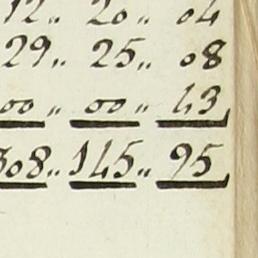 12 „ 20 „ 04
29 „ 25 „ 08
00 „ 00 „ 43
308 „ 145 „ 95